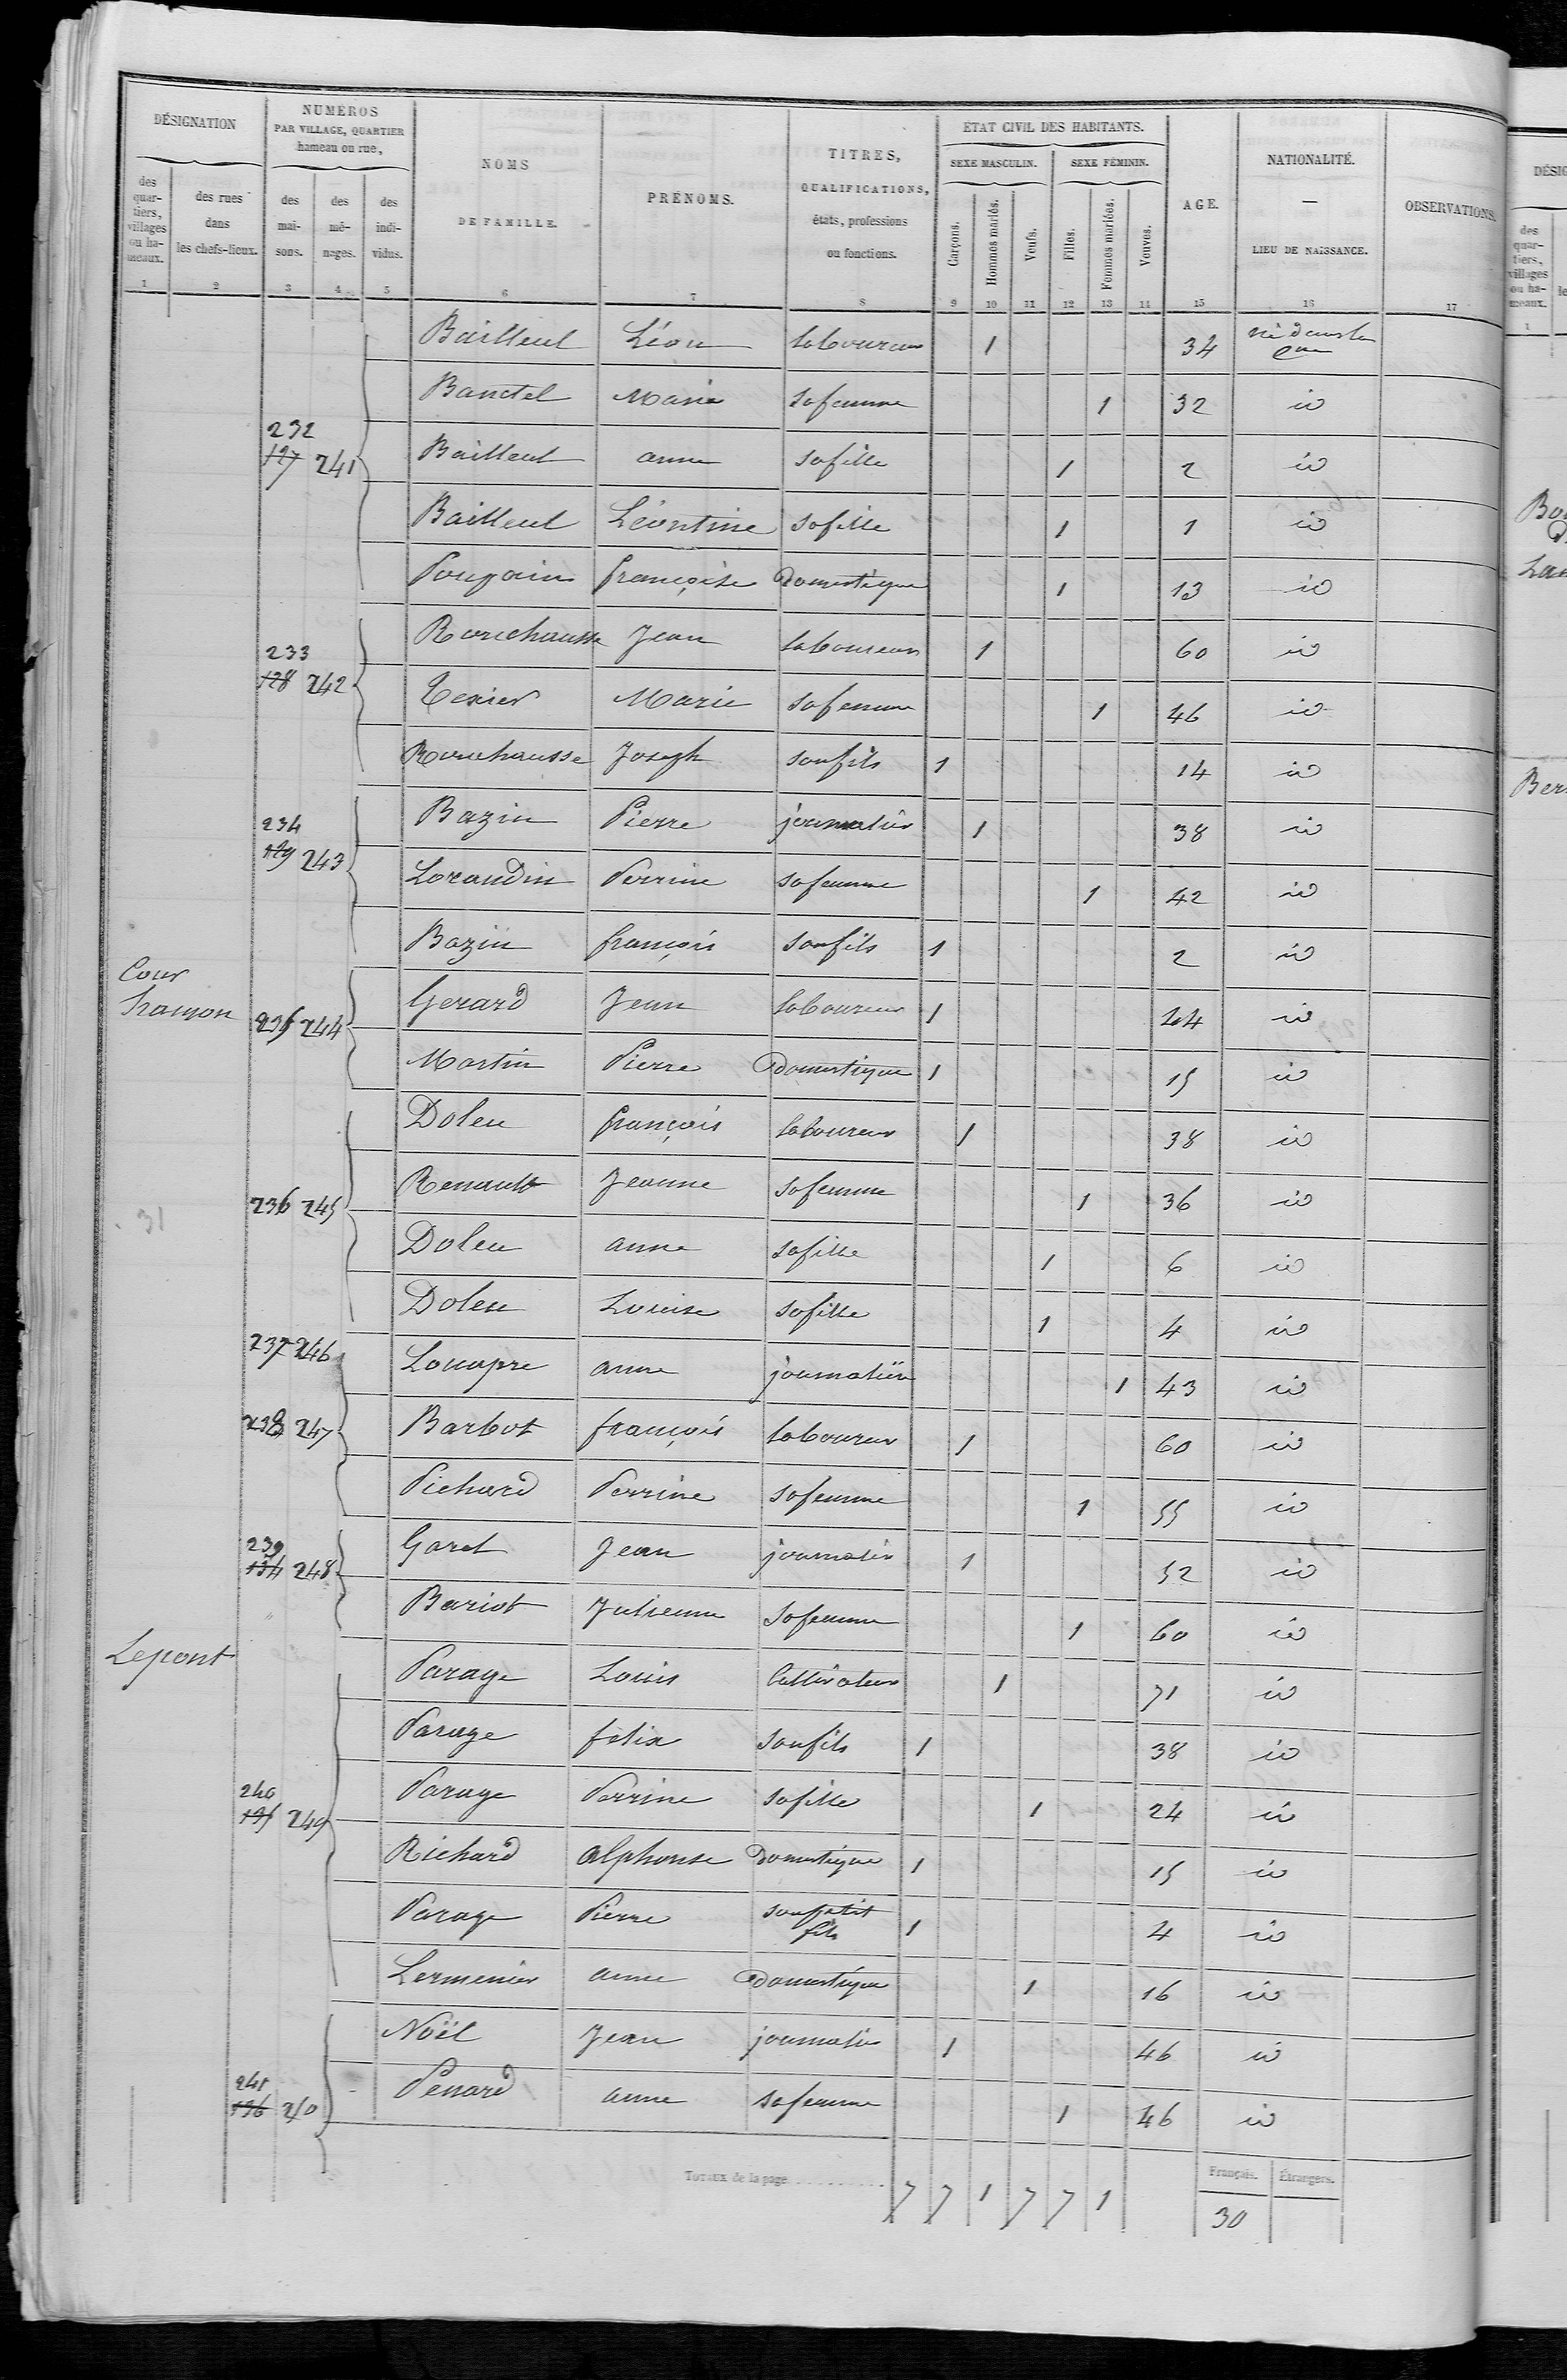 DÉSIGNATION
NUMEROS PAR VILLAGE, QUARTIER hameau ou rue,
NOMS DE FAMILLE.
PRÉNOMS.
TITRES, QUALIFICATIONS, états, professions ou fonctions.
ÉTAT CIVIL DES HABITANTS.
SEXE MASCULIN. SEXE FÉMININ.
AGE.
NATIONALITÉ. — LIEU DE NAISSANCE.
OBSERVATIONS.
des quar-tiers, villages ou ha-meaux.
des rues dans les chefs-lieux.
des mai-sons.
des mé-nages.
des indi-vidus.
Garçons. Hommes mariés. Veufs. Filles. Femmes mariées. Veuves.
1 2 3 4 5 6 7 8 9 10 11 12 13 14 15 16 17
Bailleul Léon laboureur 1 34 né dans la
Banctel Marie sa femme 1 32 id
232 127 241 Bailleul anne sa fille 1 2 id
Bailleul Léontine sa fille 1 1 id
Poupain françoise Domestique 1 13 id
Rouchausse Jean laboureur 1 60 id
233 128 242 Texier Marie sa femme 1 46 id
Rouchausse Joseph son fils 1 14 id
234 129 243 Bazin Pierre journalier 1 38 id
Lorandin Perrine sa femme 1 42 id
Bazin françois son fils 1 2 id
Cour
hamon 235 244 Gerard Jean laboureur 1 44 id
Martin Pierre Domestique 1 15 id
Doleu françois laboureur 1 38 id
236 245 Renault Jeanne sa femme 1 36 id
31
Doleu anne sa fille 1 6 id
Doleu Louise sa fille 1 4 id
237 246 Louapre anne journalière 1 43 id
238 247 Barbot françois laboureur 1 60 id
Pichard Perrine sa femme 1 55 id
239 134 248 Garel Jean journalier 1 52 id
Bariot Julienne sa femme 1 60 id
Lepont
Parage Louis Cultivateur 1 71 id
Parage felix son fils 1 38 id
240 135 249 Parage Perrine sa fille 1 24 id
Richard alphonse Domestique 1 15 id
Parage Pierre son petit fils 1 4 id
Lermenier anne Domestique 1 16 id
Noël Jean journalier 1 46 id
241 136 250 Penard anne sa femme 1 46 id
Totaux de la page 7 7 1 7 7 1
Français. Étrangers.
30